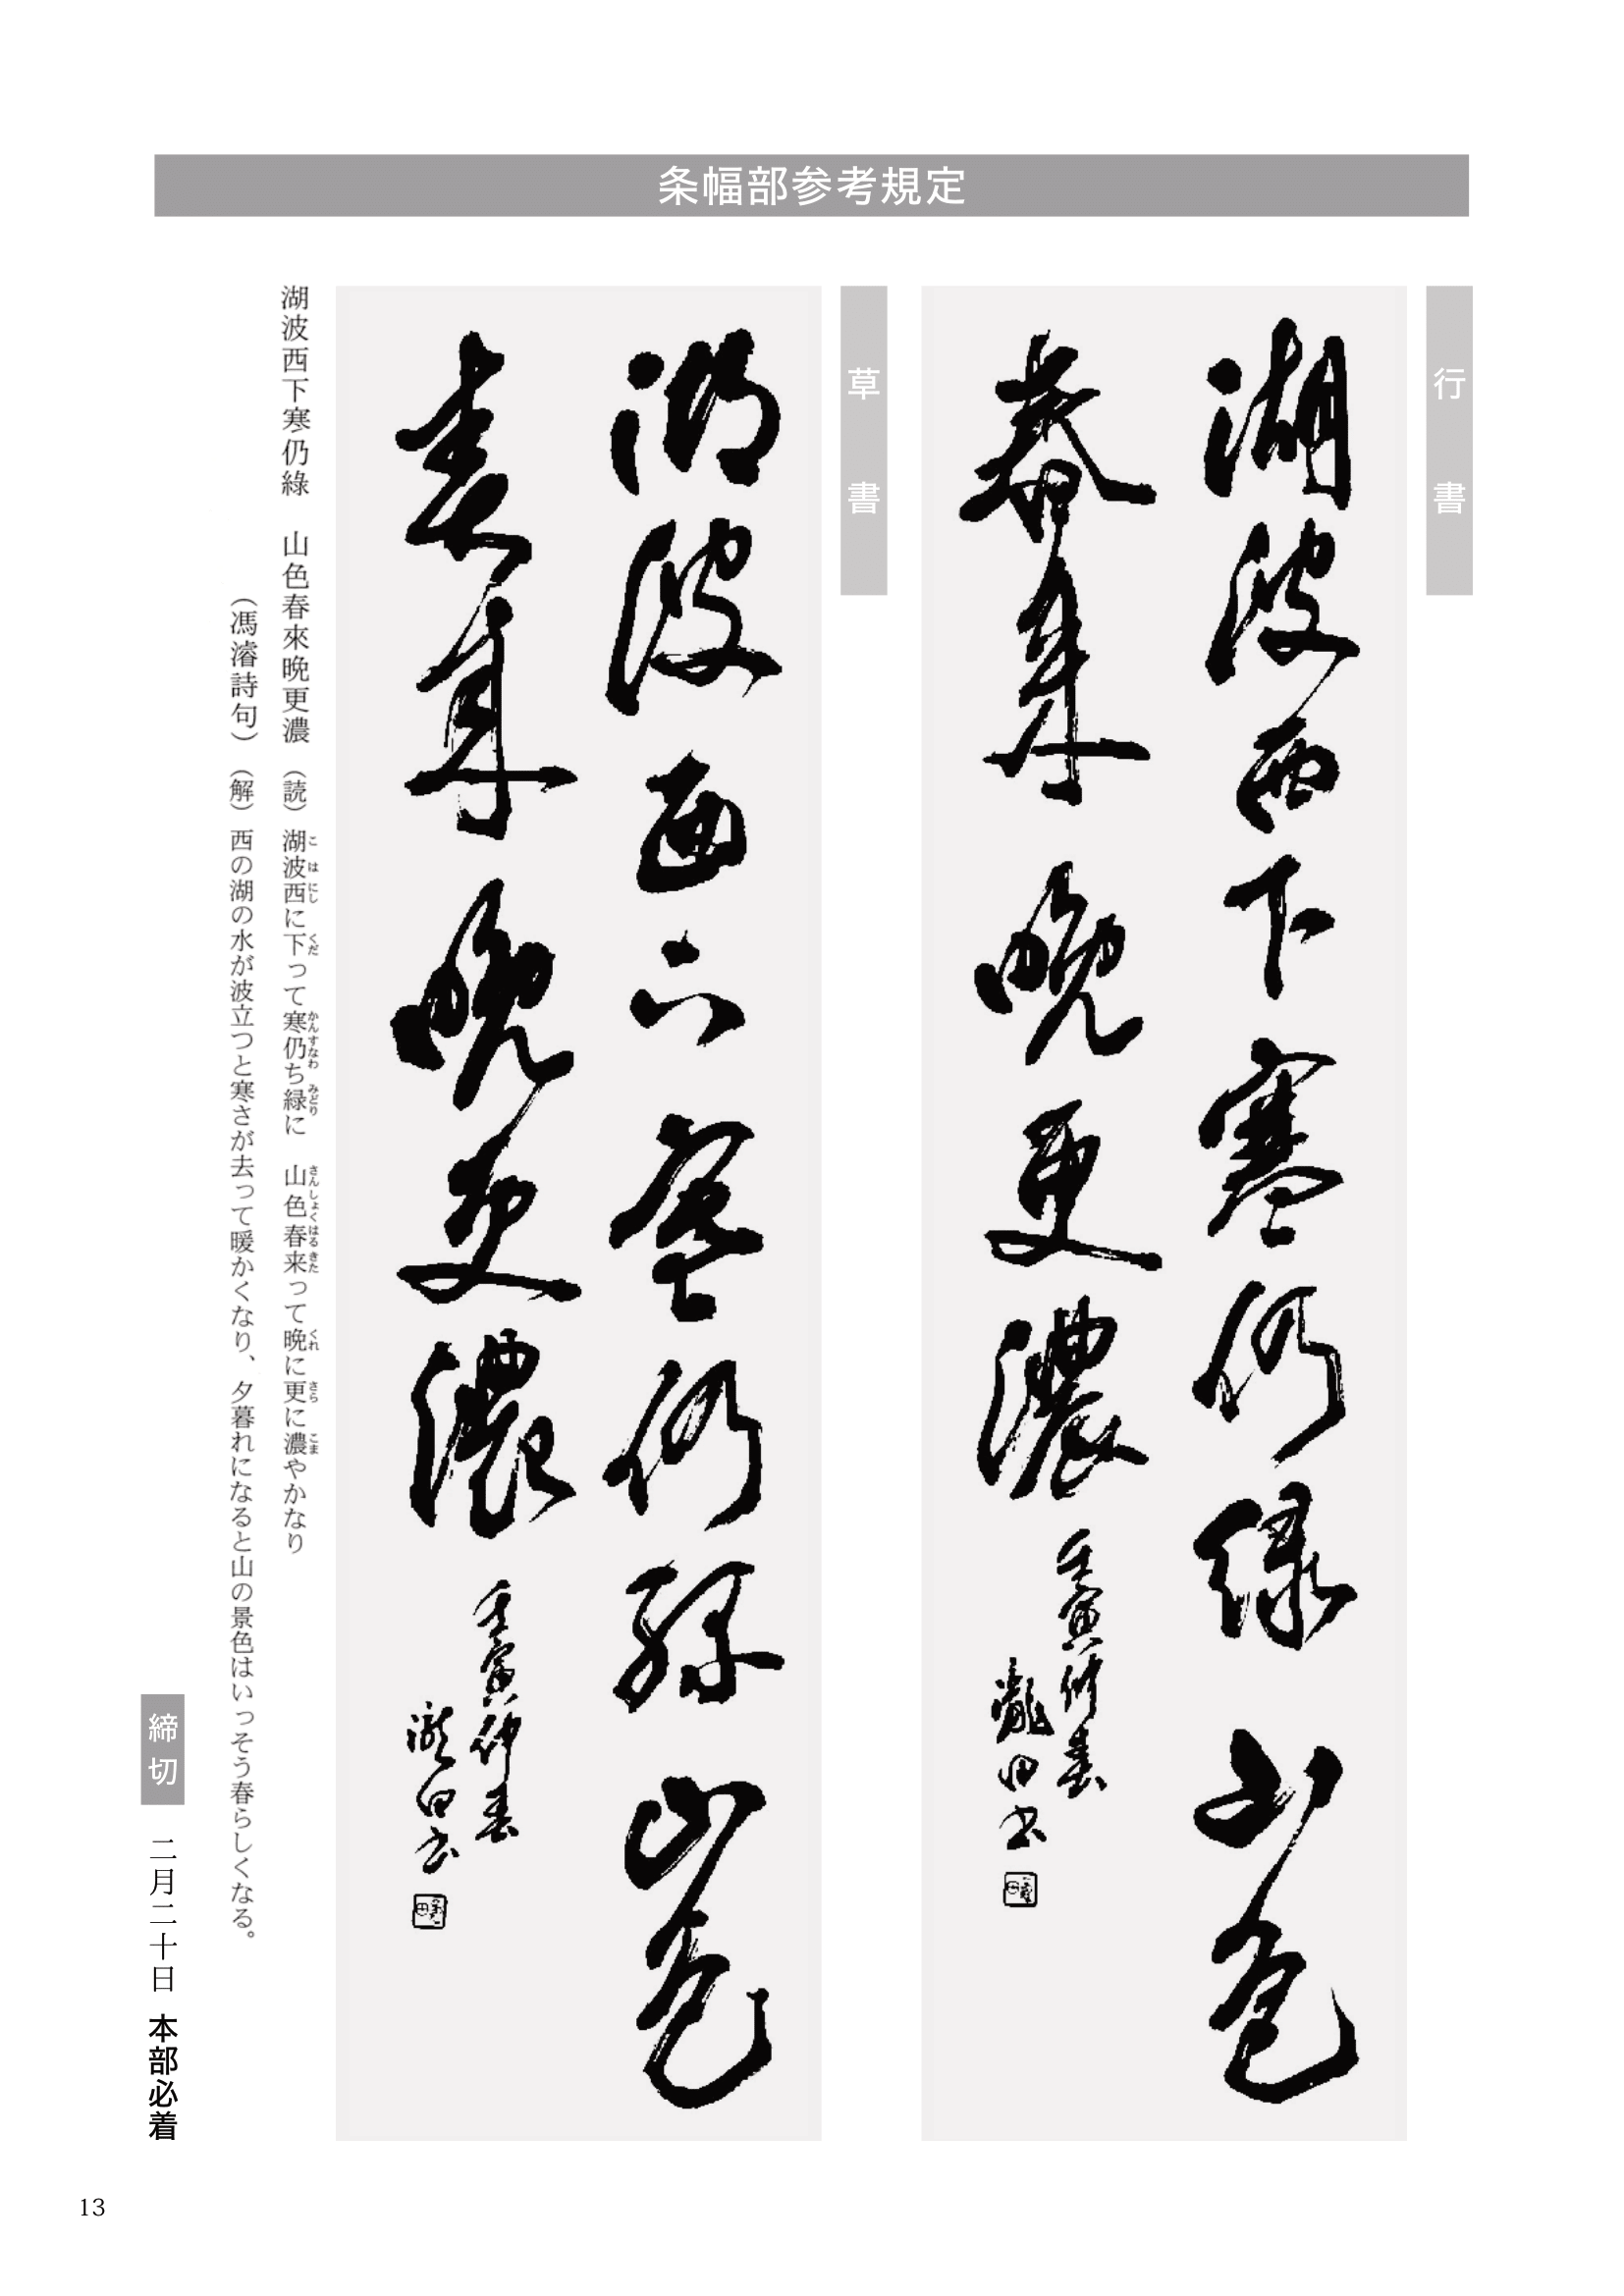 条幅部参考規定
行書
湖波西下寒仍緑山色
春来晩更濃
壬寅仲春
瀧田書
草書
湖波西下寒仍緑山色
春来晩更濃
壬寅仲春
書
湖波西下寒仍綠　山色春來晩更濃　（読）湖波西に下って寒仍ち緑に　山色春来って晩に更に濃やかなり
こ　は　にし　くだ　かん　すなわ　みどり　さんしょく　はる　きた　くれ　さら　こま
（馮濬詩句）（解）西の湖の水が波立つと寒さが去って暖かくなり、夕暮れになると山の景色はいっそう春らしくなる。
締切　二月二十日　本部必着
13